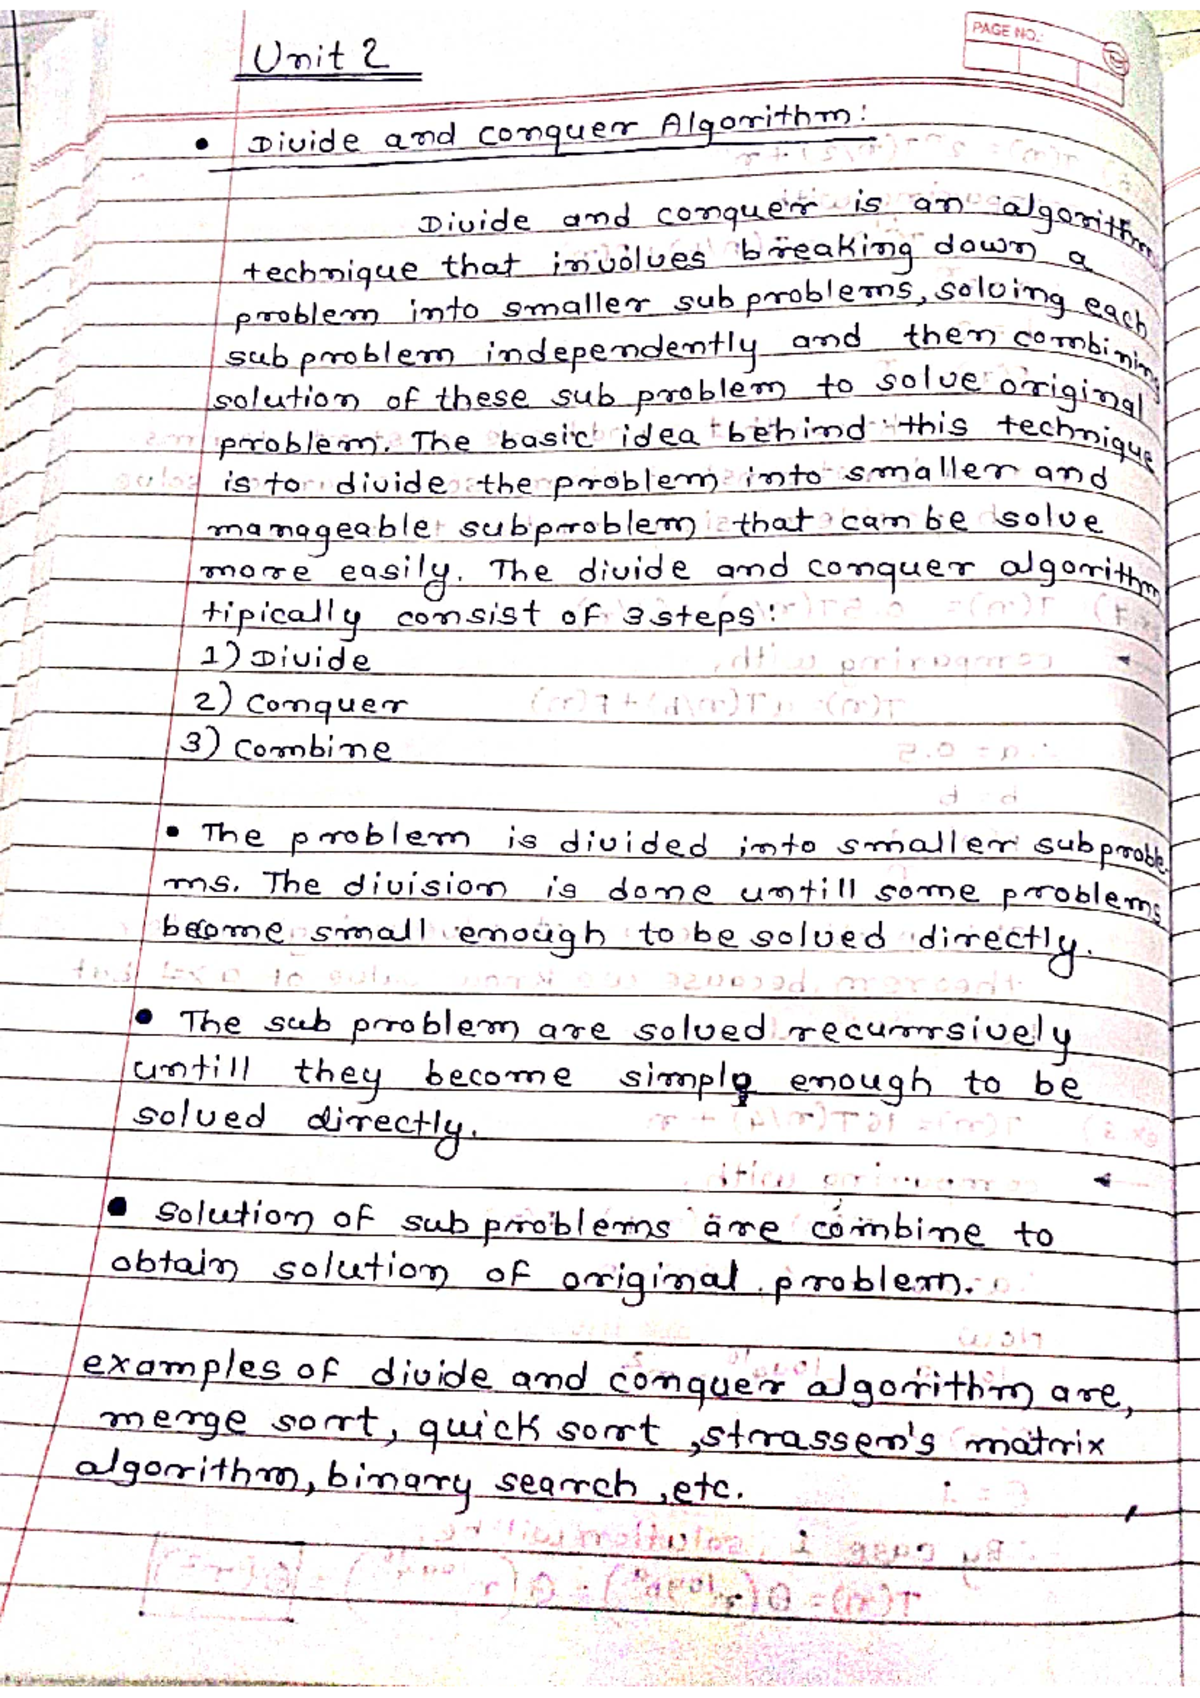 PAGE NO.:
Unit 2
• Divide and conquer Algorithm:
Divide and conquer is an algorithm
technique that involves breaking down a
problem into smaller sub problems, solving each
sub problem independently and then combining
solution of these sub problem to solve original
problem. The basic idea behind this technique
is to divide the problem into smaller and
manageable subproblem that can be solve
more easily. The divide and conquer algorithm
tipically consist of 3 steps:
1) Divide
2) Conquer
3) Combine
• The problem is divided into smaller subproble
ms. The division is done untill some problems
become small enough to be solved directly.
• The sub problem are solved recurrsively
untill they become simple enough to be
solved directly.
• Solution of sub problems are combine to
obtain solution of original problem.
examples of divide and conquer algorithm are,
merge sort, quick sort, strassen's matrix
algorithm, binary search, etc.